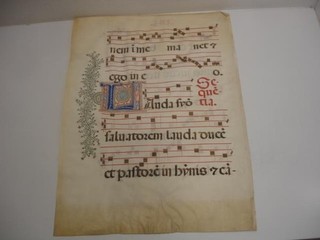 nem ī me ma net ⁊
ego in e o.
Se
quē
tia.
Lauda syō
saluatorem lauda ducē
et pastorē in hȳnis ⁊ cā-